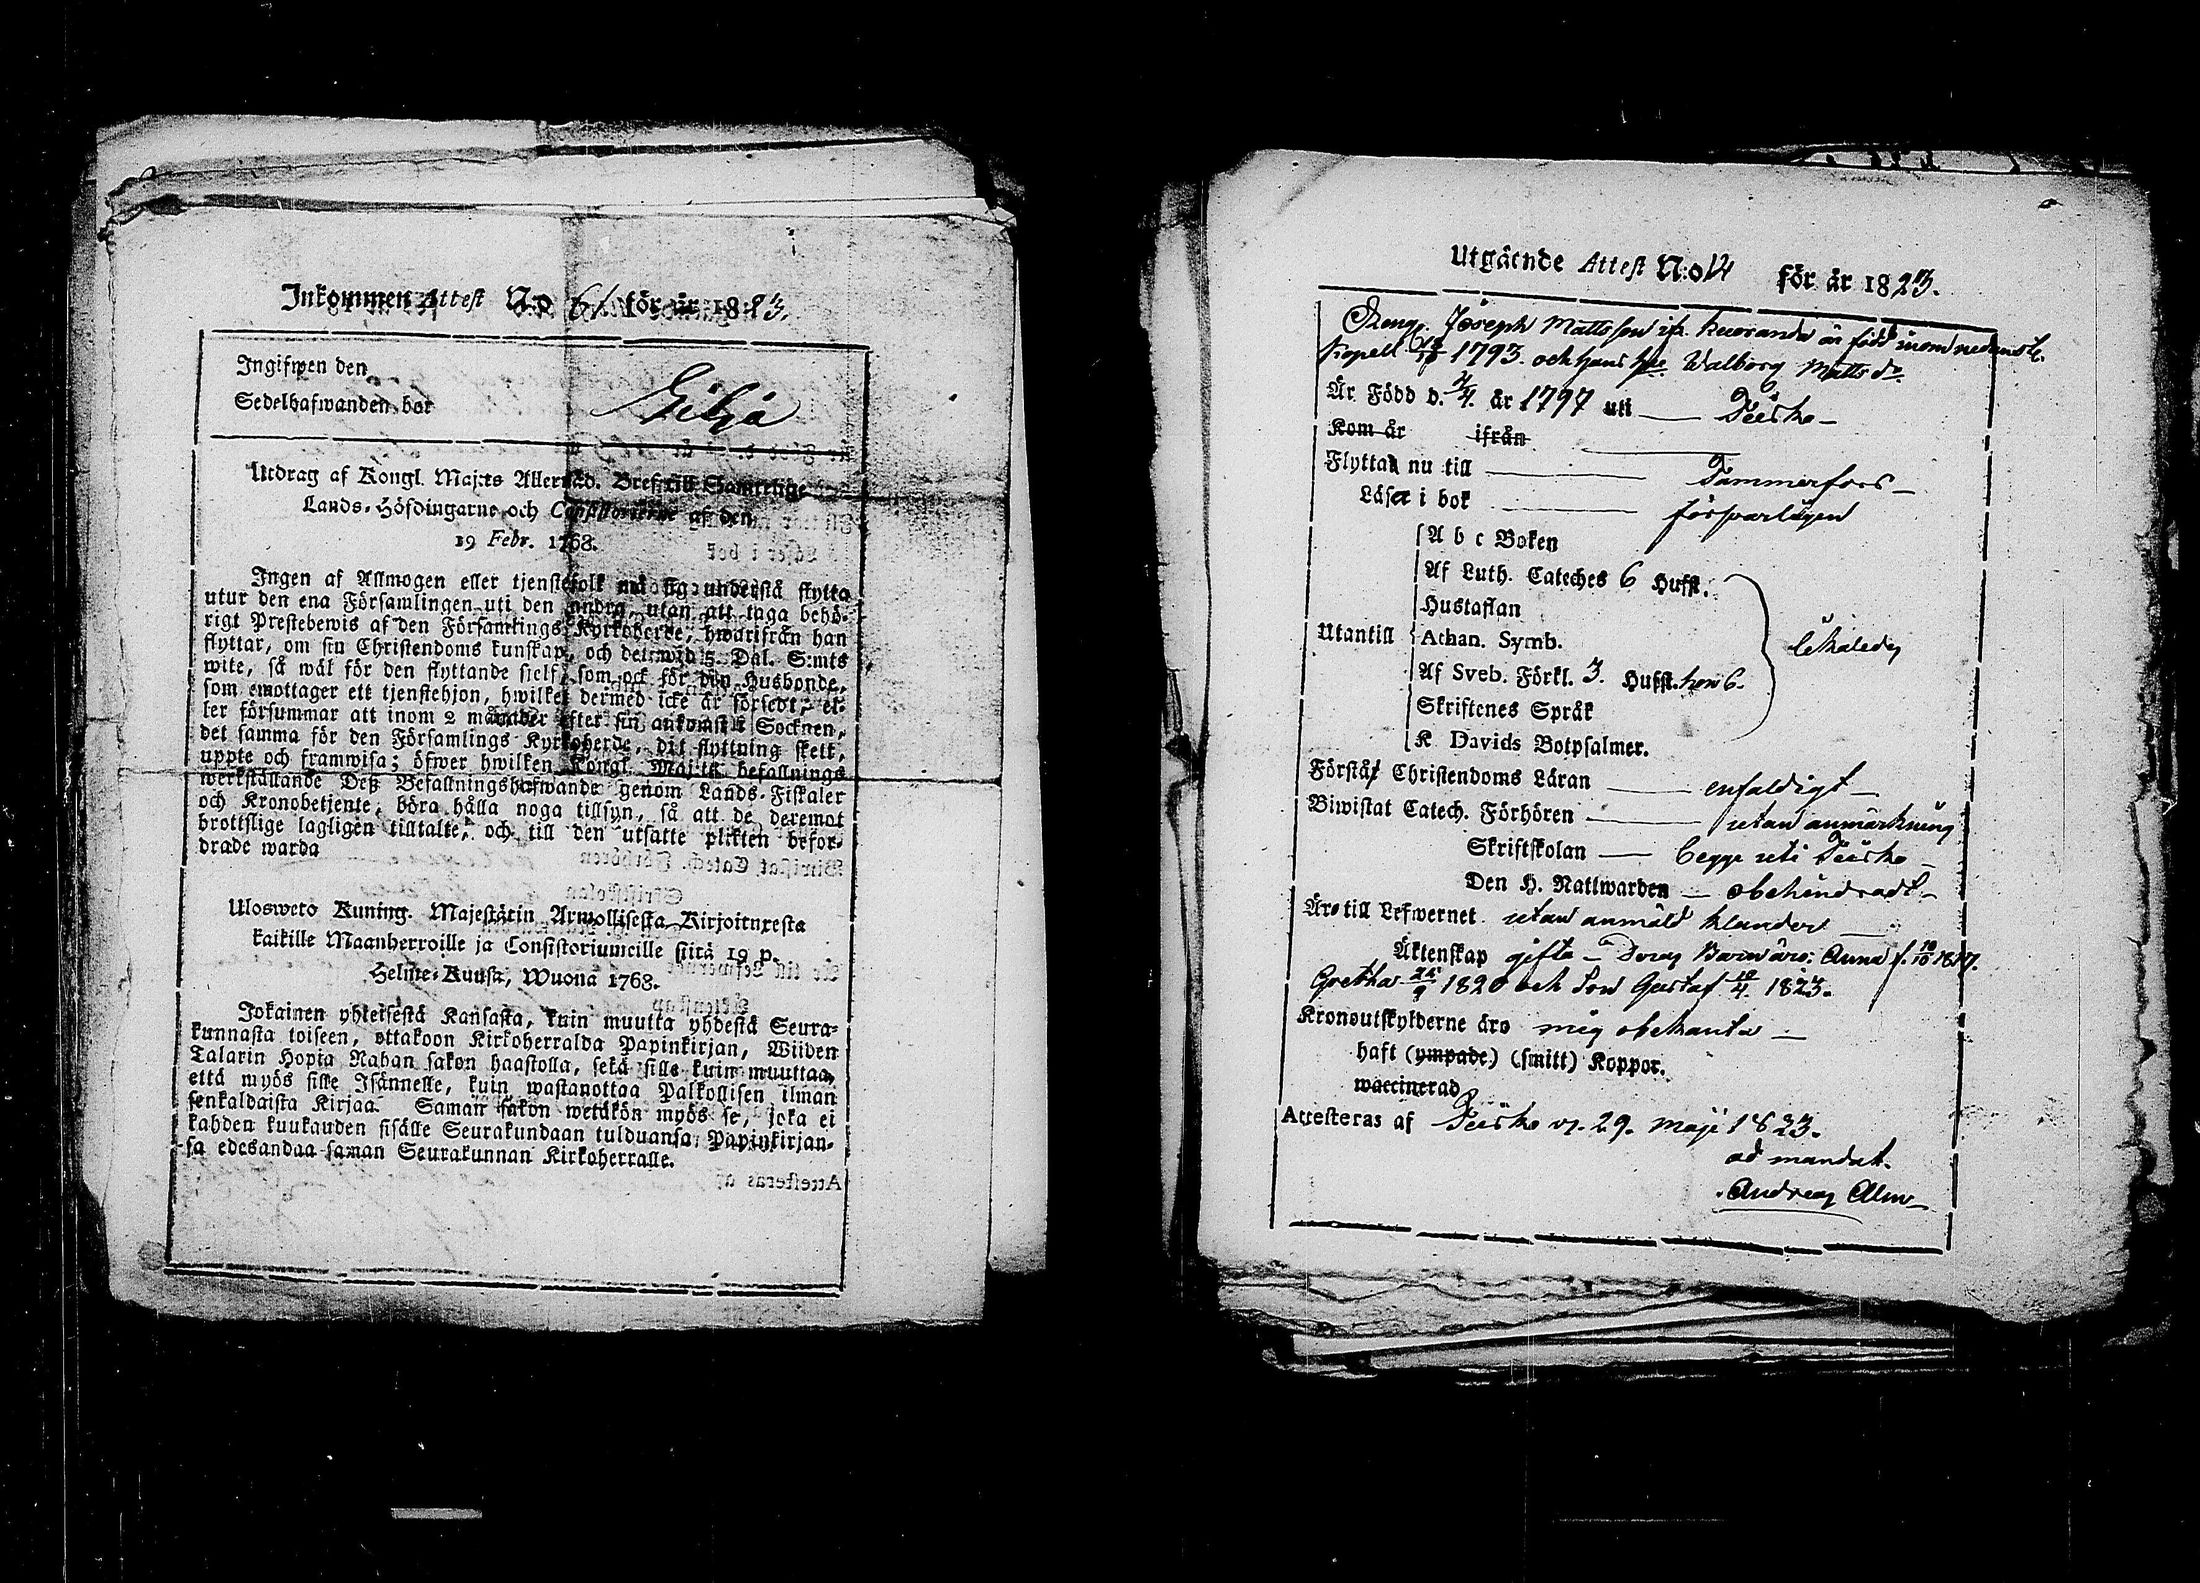 Inkommen Attest N:o 61 för år 1823.
Ingifwen den
Sedelhafwanden bor Gilja
Utdrag af Kongl. Maj:ts Allernåd. Bref till Samtelige
Lands-Höfdingarne och Consistorierne af den
19 Febr. 1768.
Ingen af Allmogen eller tjenstefolk må sig understå flytta
utur den ena Församlingen uti den andra, utan att taga behö-
rigt Prestebewis af den Församlings Kyrkoherde, hwarifrån han
flyttar, om sin Christendoms kunskap, och det wid 5 Dal. S:mts
wite, så wäl för den flyttande sielf, som ock för den Husbonde,
som emottager ett tjenstehjon, hwilket dermed icke är försedt, el-
ler försummar att inom 2 månader efter sin ankomst i Socknen,
det samma för den Församlings Kyrkoherde, dit flyttning skett,
uppte och framwisa; öfwer hwilken Kongl. Maj:ts befallnings
werkställande Deß Befallningshafwande genom Lands-Fiskaler
och Kronobetjente, böra hålla noga tillsyn, så att de deremot
brottslige lagligen tilltalte, och till den utsatte plikten befor-
drade warda
Ulosweto Kuning. Majestätin Armollisesta Kirjoituxesta
kaikille Maanherroille ja Consistoriumeille siitä 19 p.
Helme-Kuusa, Wuona 1768.
Jokainen yhteisestä Kansasta, kuin muutta yhdestä Seura-
kunnasta toiseen, ottakoon Kirkoherralda Papinkirjan, Wiiden
Talarin Hopia Rahan sakon haastolla, sekä sille kuin muuttaa,
että myös sille Isännelle, kuin wastanottaa Palkollisen ilman
senkaldaista Kirjaa. Saman sakon wetäkön myös se, joka ei
kahden kuukauden sisälle Seurakundaan tulduansa, Papinkirjan-
sa edesandaa saman Seurakunnan Kirkoherralle.
Utgående Attest N:o 14 för år 1823.
Dreng. Joseph Mattsson ifr. Kuoranda är född inom nedanst.
Kapell 1793. och hans hu Walborg Matts dr.
Är Född d. 4/4. år 1797 uti Piikko
Kom år ifrån
Flyttar nu till Tammerfors
Läser i bok försvarligen
A b c Boken
Af Luth. Cateches 6 Hufst.
Hustaflan
Utantill Athan. Symb.
Af Sveb. Förkl. 3. Hufst. hon 6.
Skriftenes Språk
K Davids Botpsalmer.
Förstå Christendoms Läran enfaldigt
Biwistat Catech. Förhören utan anmärkning
Skriftskolan begge uti
Den H. Nattwarden obehindradt
Äro till Lefwernet utan anmäld klander
Äktenskap gifte Deras Barn äro: Anna f. 1817.
Gretha 1820 och Son Gustaf 1823.
Kronoutskylderne äro mig obekanta
haft (ympade) (smitt) Koppor.
waccinerad
Attesteras af d. 29. Maji 1823.
ad mandat.
Andreas Alm